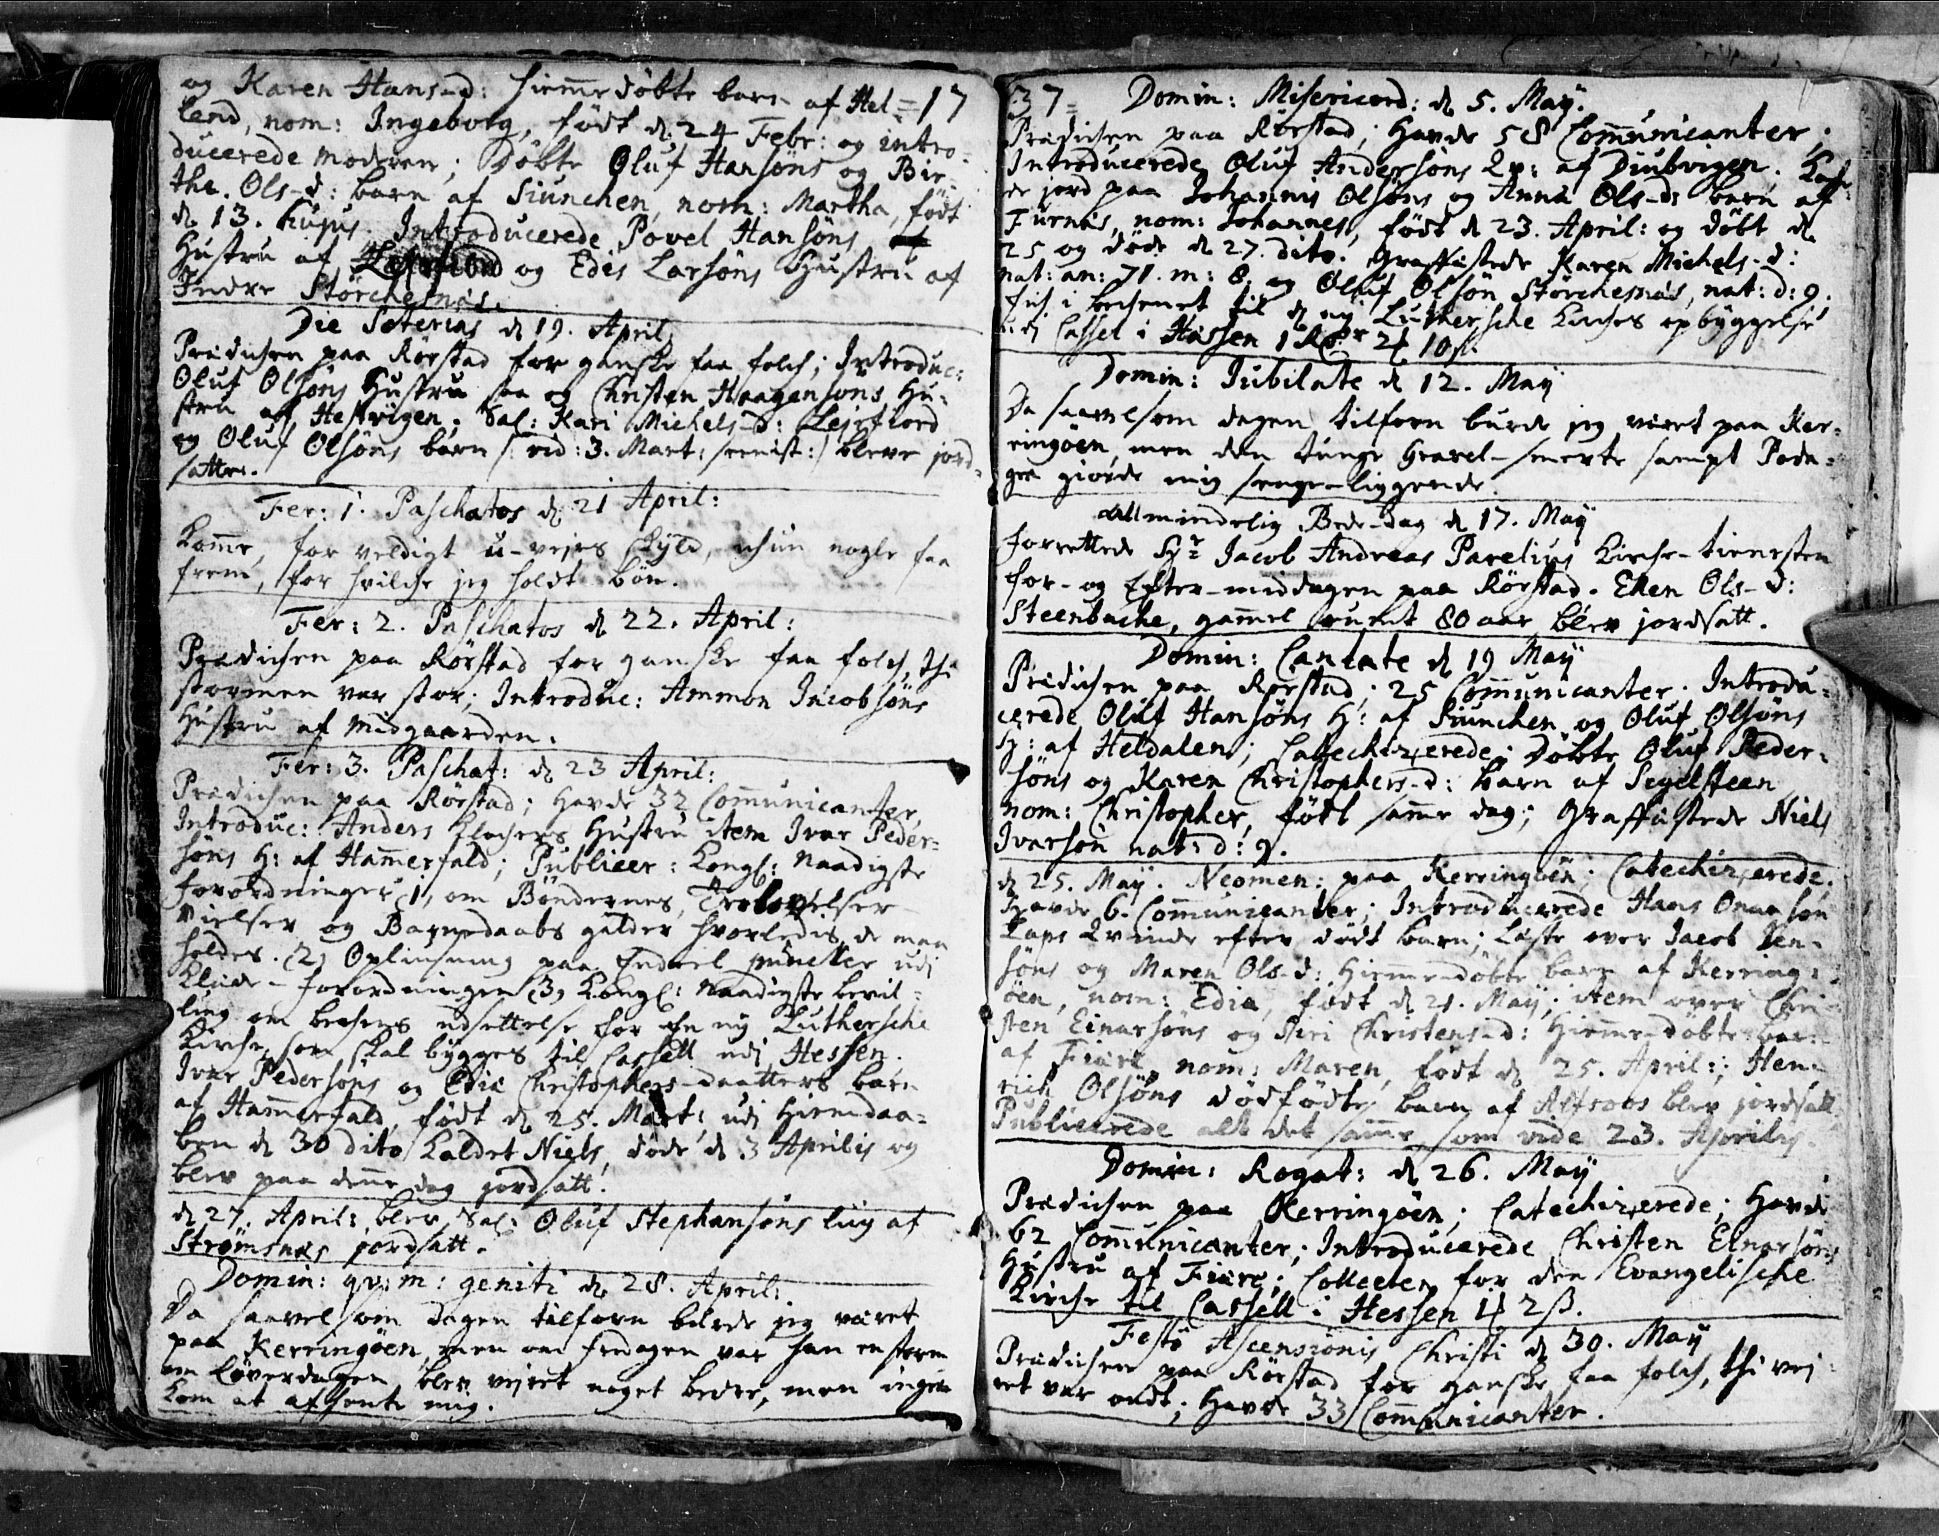 og Karen Hans-d: hiemmedöbte barn af Hel- = 17
land, nom: Ingeborg, födt d. 24 Febr: og intro-
ducerede moderen; Döbte Oluf Hansöns og Bir-
the Ols-d: barn af Siunchen, nom: Martha, födt
d. 13. hujus. Introducerede Povel Hansöns
Hustru af og Edis Larsöns Hustru af
Indre Störchesnæs.
Die Soterias d. 19. April.
Prædichen paa Rörstad for ganske faa folch; Introduc:
Oluf Olsöns Hustru saa og Christen Haagensons Hu-
stru af Hestvigen. Sal: Kari Michels-d: Leirfiord
og Oluf Olsöns barn /: vid: 3. Mart: :/ bleve jord-
satte.
Fer: 1. Paschatos d. 21 April:
Komme, for veldigt u-vejrs skyld, ichun nogle faa
frem, for hvilche jeg holdt bön.
Fer: 2. Paschatos d. 22. April:
Prædichen paa Rörstad for ganske faa folch, thi
stormen var stor; Introduc: Ammon Jacobsöns
Hustru af Midgaarden.
Fer: 3. Paschat: d. 23 April:
Prædichen paa Rörstad; Havde 32 Communicanter,
Introduc: Anders Klochers Hustru item Ivar Peder-
söns H: af Hamerfald; Publicer: Kongl: Naadigste
forordninger 1, om Böndernes, Trolovelser
Vielser og Barnedaabs gilder hvorledis de maa
holdes. (2) Opliusning paa Endeel puncter udi
Klæde-forordningen (3, Kongl: Naadigste bevil-
ling om bechens udsettelse for En ny Luthersche
Kirche, som skal bygges til Cassell udi Hessen.
Ivar Pedersöns og Edis Christophers-daatters barn
af Hammerfald, födt d. 25. Mart: udi Hiemdaa-
ben d. 30 dito kaldet Niels, döde d. 3 Aprilis og
blev paa denne dag jordsatt.
d. 27. April: blev Sal: Oluf Stephansöns liig af
Strömsnæs jordsatt.
Domin: qv: m: geniti d. 28. April:
Da saavelsom dagen tilforn burde jeg været
paa Kerringöen, men om fredagen var han en storm
om Löverdagen blev vejret noget bedre, men ingen
kom at afhente mig.
37 = Domin: Misericord: d. 5. May.
Prædichen paa Rörstad; Havde 58 Communicanter;
Introducerede Oluf Andersöns Qv: af Diubvigen. Kaste-
de jord paa Johannis Olsöns og Anna Ols-d: barn af
Furnæs, nom: Johannes, födt d. 23. April: og döbt d.
25 og döde d. 27. dito. Graffæstede Karen Michels-d:
nat: an: 71. m: 8. og Oluf Olsön Störchesnæs, nat: d: 9.
i bechenet til d. ny Luthersche kirches opbyggelse
udi Cassel i Hassen 1 Rdr 10 s.
Domin: Jubilate d. 12. May
Da saavelsom dagen tilforn burde jeg været paa Ker-
ringöen, men den tunge Gravel-smerte sampt Poda-
gra giorde mig senge-liggende.
Allmindelig Bede-dag d. 17. May
forrettede Hr Jacob Andreas Parelius Kirche-tienesten
for- og Efter-middagen paa Rörstad. Elen Ols-d:
Steenbache, gammel rundt 80 aar blev jordsatt.
Domin: Cantate d. 19 May
Prædichen paa Rörstad; 25 Communicanter. Introdu-
cerede Oluf Hansöns H: af Siunchen og Oluf Olsöns
H: af Heldalen; Catechizerede; Döbte Oluf Peder-
söns og Karen Christophers-d: barn af Segelsteen
nom: Christopher, födt samme dag; Graffæstede Niels
Ivarsön nat: d: 9.
d. 25. May. Neomen: paa Kerringöen; Catechizerede.
Havde 6. Communicanter; Introducerede Hans
Laps Qvinde efter dödt barn; Læste over Jacob Jen-
söns og Maren Ols-d: Hiemmedöbte barn af Kerring-
öen, nom: Edia, födt d. 21. May; item over Chri-
sten Einarsöns og Siri Christens-d: Hiemmedöbte barn
af Fiære, nom: Maren, födt d. 25. April:; Hen-
rich Olsöns dödfödte barn af blev jordsatt
Publicerede alt det samme som vide 23. Aprilis.
Domin: Rogat: d. 26. May
Prædichen paa Kerringöen; Catechizerede; Havde
62 Communicanter; Introducerede Christen Einarsöns
Hustru af Fiære; Collecten for den Evangelische
Kirche til Cassell i Hessen 2 ß.
Festo Ascensionis Christi d. 30. May
Prædichen paa Rörstad for ganske faa folch, thi vej-
ret var ondt; Havde 33 Communicanter.